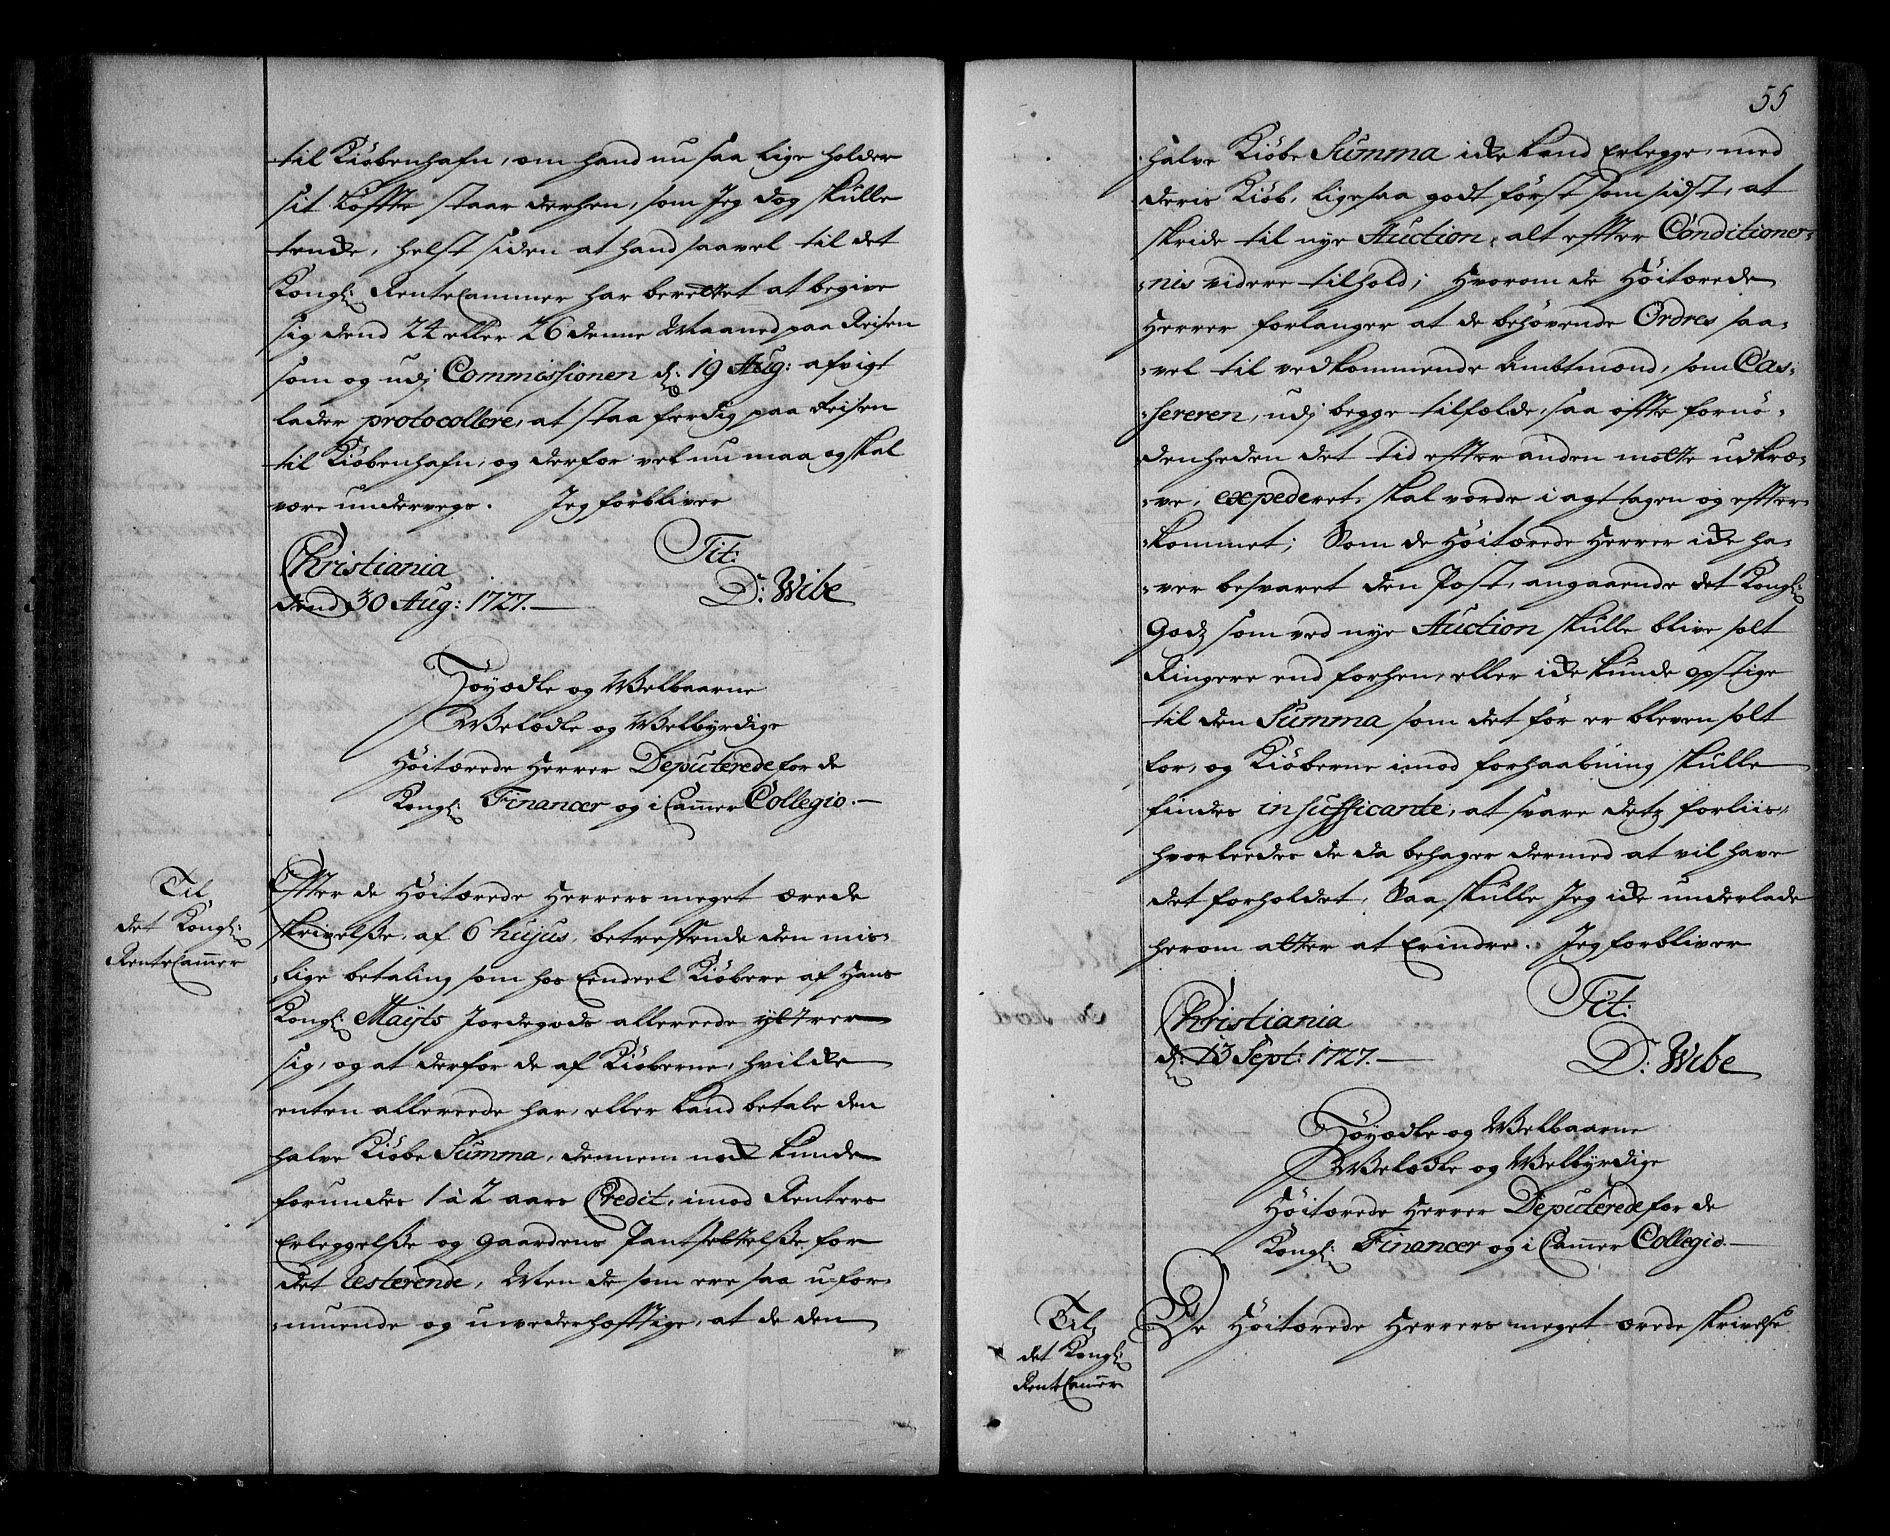 til Kiöbenhafn, om hand nu saa lige holder
sit Löffte staar derhen, som Jeg dog skulle
tencke, helst siden at hand saavel til det
Kongl: RenteCammer har berettet at begive
sig dend 24 eller 26 denne Maaned paa Reisen
som og udj Commissionen d: 19 Aug: afvigt
lader protocollere, at staa ferdig paa Reisen
til Kiöbenhafn, og derfor vel nu maa og skal
være undervegs. Jeg forbliver
Tit:
Christiania
dend 30 Aug: 1727.
D: Wibe
Höyædle og Welbaarne
Welædle og Welbyrdige
Höitærede Herrer Deputerede for de
Kongl: Financer og i Cammer Collegio.
Til
det Kongl:
RenteCammer
Effter de Höitærede Herrers meget ærede
skrivelße, af 6 hujus, betreffende den mis-
-lige betaling som hos Eendeel Kiöbere af Hans
Kongl: Mayts Jordegods allereede yttrer
sig, og at derfor de af Kiöberne, hvilcke
enten allereede har, eller kand betale den
halve Kiöbe Summa, dennem nock kunde
forundes 1 à 2 aars Credit, imod Renters
Erleggelße og Gaardens Pantsettelße for
det resterende, Men de som ere saa ufor-
-muende og uvederhæfftige, at de den
55
halve Kiöbe Summa icke kand Erlegge, med
deris Kiöb, ligesaa godt först som sidst, at
skride til nye Auction, alt effter Conditioner-
-nis videre tilhold; Hvorom de Höitærede
Herrer forlanger at de behövende Ordres saa-
-vel til vedkommende Ambtmænd, som Cas-
-sereren, udj begge tilfælde, saa offte fornö-
denheden det tid effter anden motte udkræ-
-ve, expederet, skal vorde i agt tagen og effter-
-kommet; Som de Höitærede Herrer icke ha-
-ver besvaret den Post, angaaende det Kongl:
Godz som ved nye Auction skulle blive solt
Ringere end forhen, eller icke kunde opstige
til den Summa som det för er bleven solt
for, og Kiöberne imod forhaabning skulle
findes insufficante, at svare detz forliis,
hvorleedes de da behager dermed at vil have
det forholdet, Saa skulle Jeg icke underlade
herom atter at Erindre. Jeg forbliver
Tit:
Christiania
d: 13 Sept: 1727.
D: Wibe
Höyædle og Welbaarne
Welædle og Welbyrdige
Höitærede Herrer Deputerede for de
Kongl: Financer og i Cammer Collegio.
Til
det Kongl:
RenteCammer
De Höitærede Herrers meget ærede skrivelse